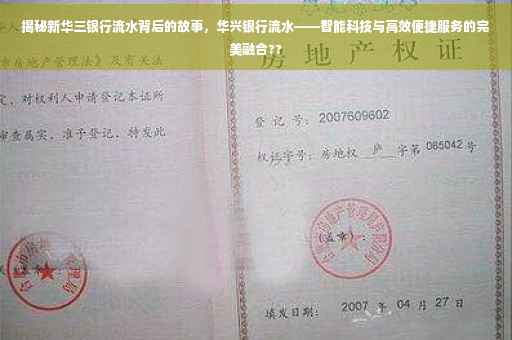 揭秘新华三银行流水背后的故事，华兴银行流水——智能科技与高效便捷服务的完
美融合??
房地产权证
市房地产管理法》及有关法
定，对权利人申请登记本证所
审查属实，准予登记，特发此
登 记 号： 2007609602
权证字号：房地权 庐 字第 085042 号
(盖章)：
填发日期： 2007 年 04 月 27 日